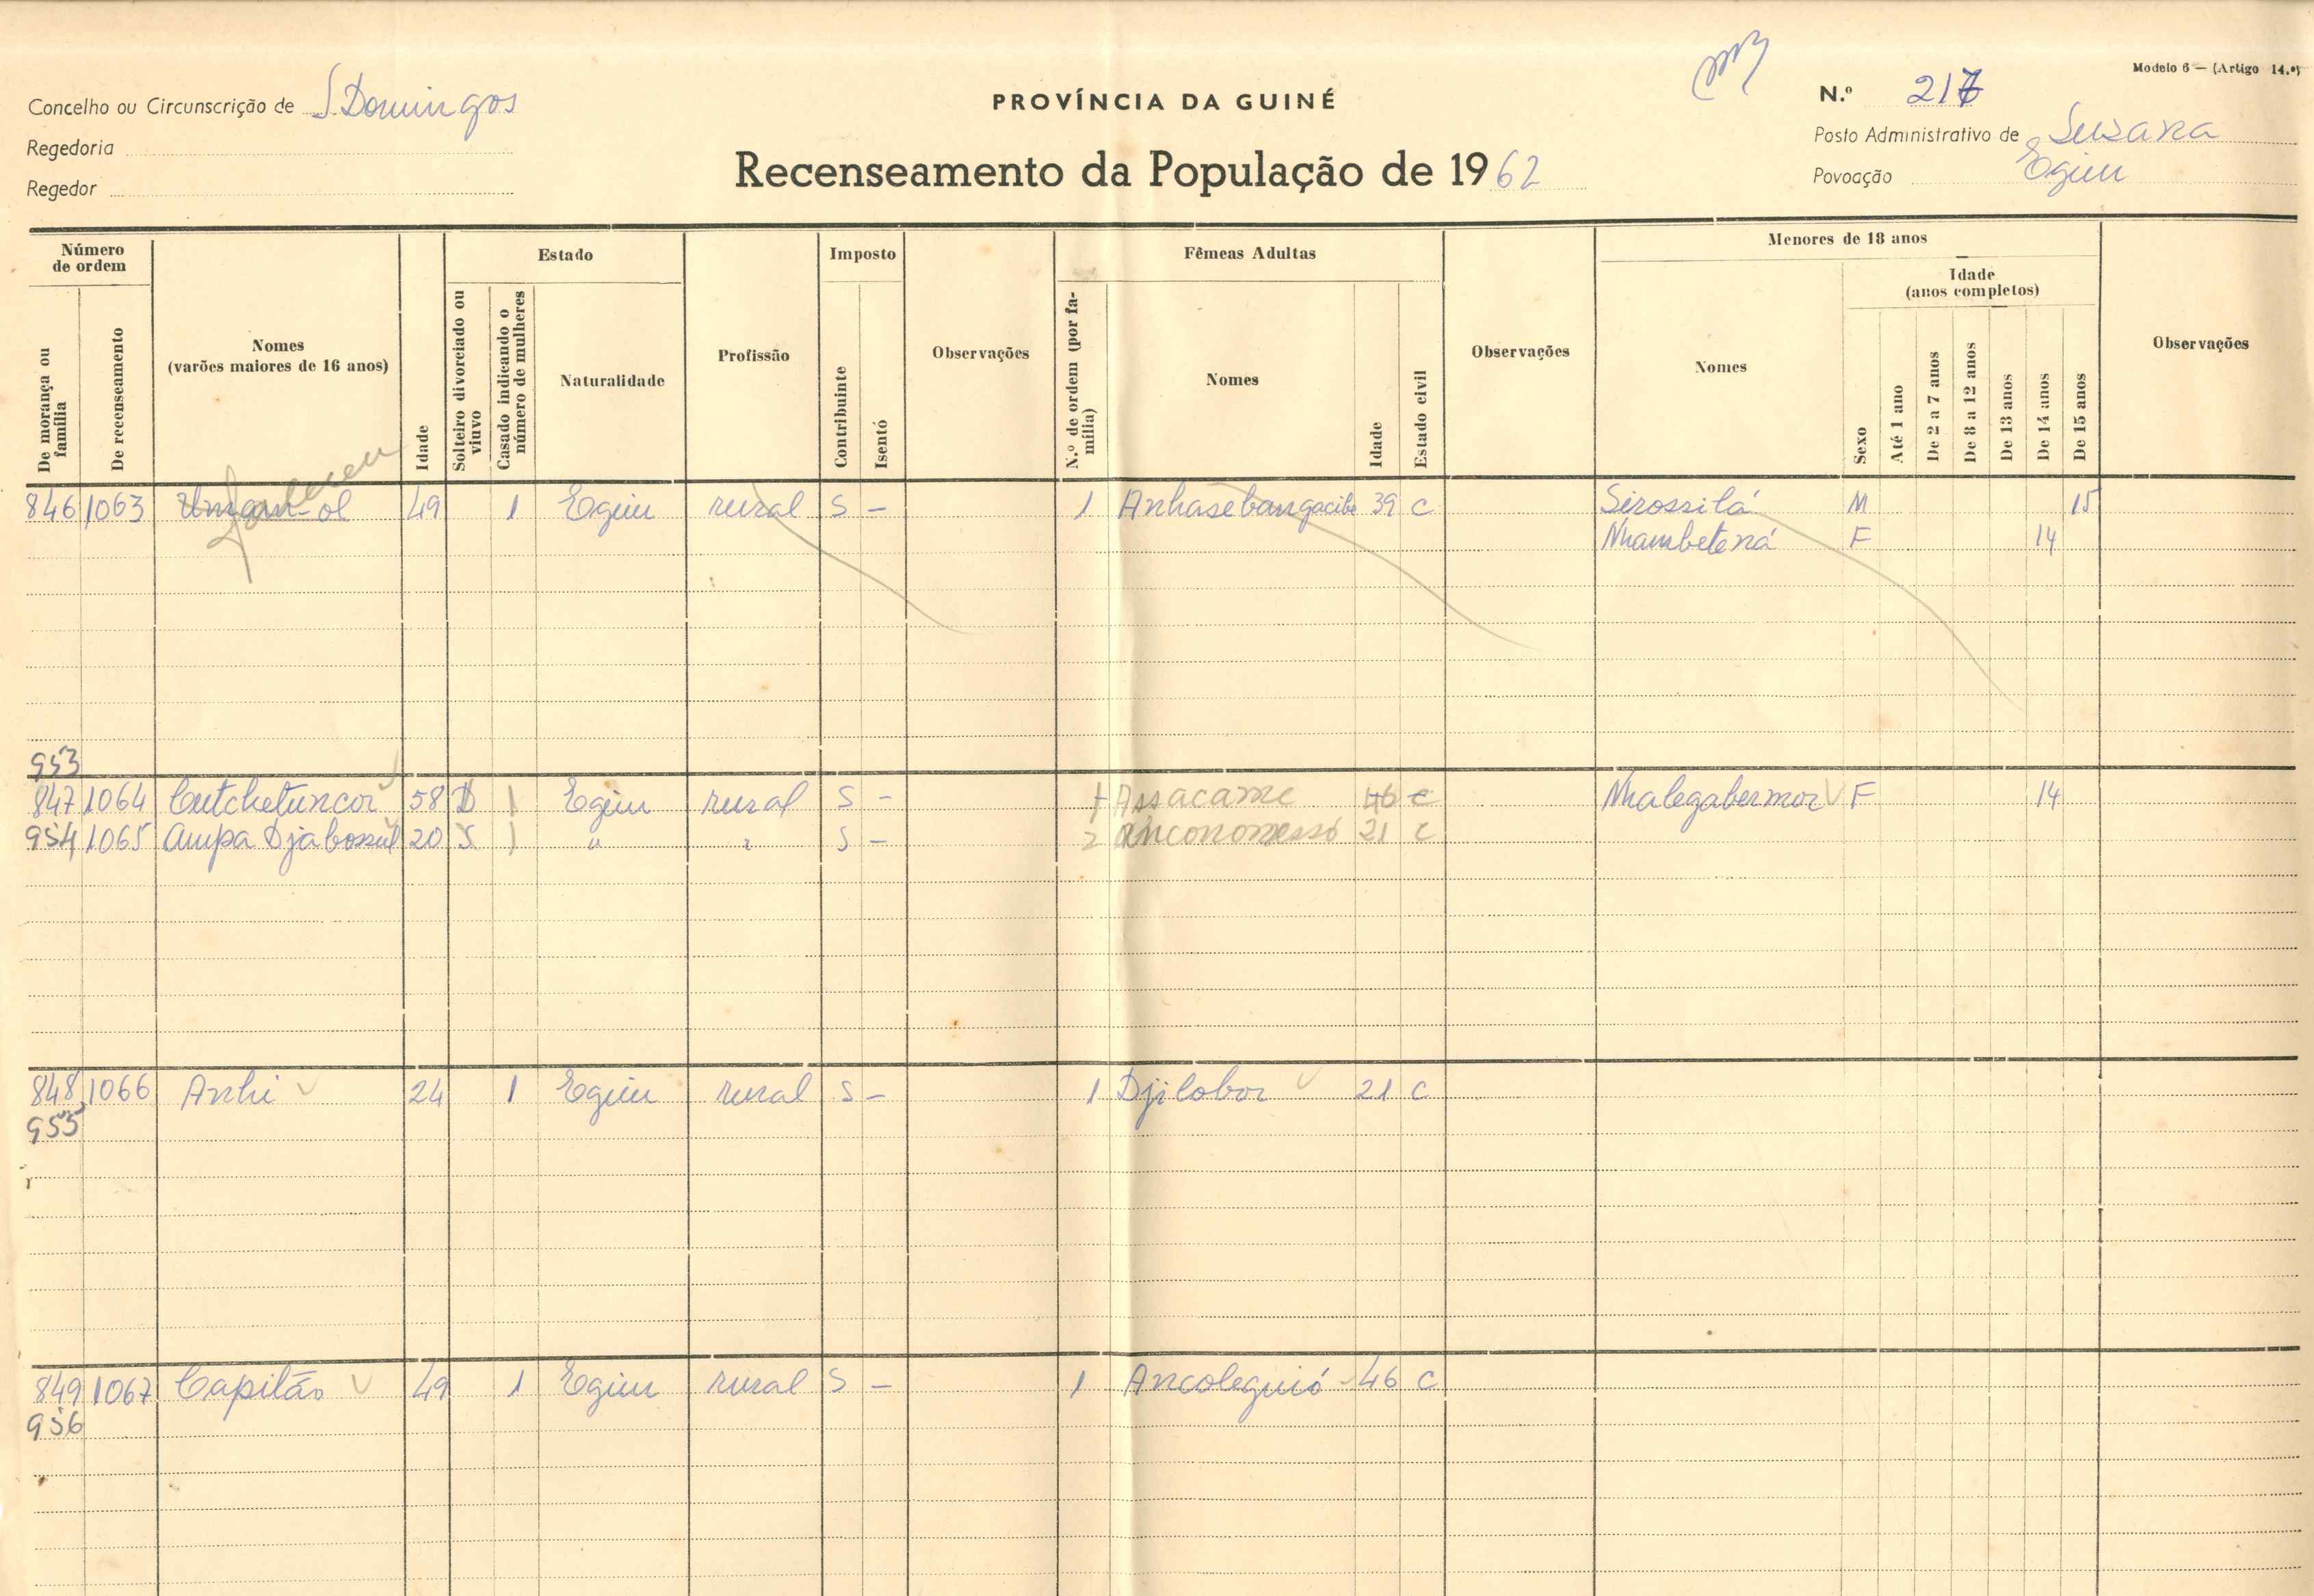 Modelo 6 — (Artigo 14.º)
Concelho ou Circunscrição de S. Domingos
PROVÍNCIA DA GUINÉ
N.º 217
Regedoria
Posto Administrativo de Suzana
Regedor
Recenseamento da População de 1962
Povoação Egim
Número de ordem
De morança ou família
De recenseamento
Nomes
(varões maiores de 16 anos)
Idade
Estado
Solteiro divorciado ou viuvo
Casado indicando o número de mulheres
Naturalidade
Profissão
Imposto
Contribuinte
Isento
Observações
Fêmeas Adultas
N.º de ordem (por família)
Nomes
Idade
Estado civil
Observações
Menores de 18 anos
Nomes
Sexo
Idade
(anos completos)
Até 1 ano
De 2 a 7 anos
De 8 a 12 anos
De 13 anos
De 14 anos
De 15 anos
Observações
846 1063 49 1 Egim rural S — 1 Anhasebangacibe 39 C Sirossilá M 15
Nhambetená F 14
953
847 1064 Cutchetuncor 58 D 1 Egim rural S — 1 Assacame 46 C Nhalegabermor F 14
954 1065 Aupa Djabossul 20 S 1 " " S — 2 Anconomessó 21 C
848 1066 Anhi 24 1 Egim rural S — 1 Djilobor 21 C
955
849 1067 Capitão 49 1 Egim rural S — 1 Ancoleguió 46 C
956